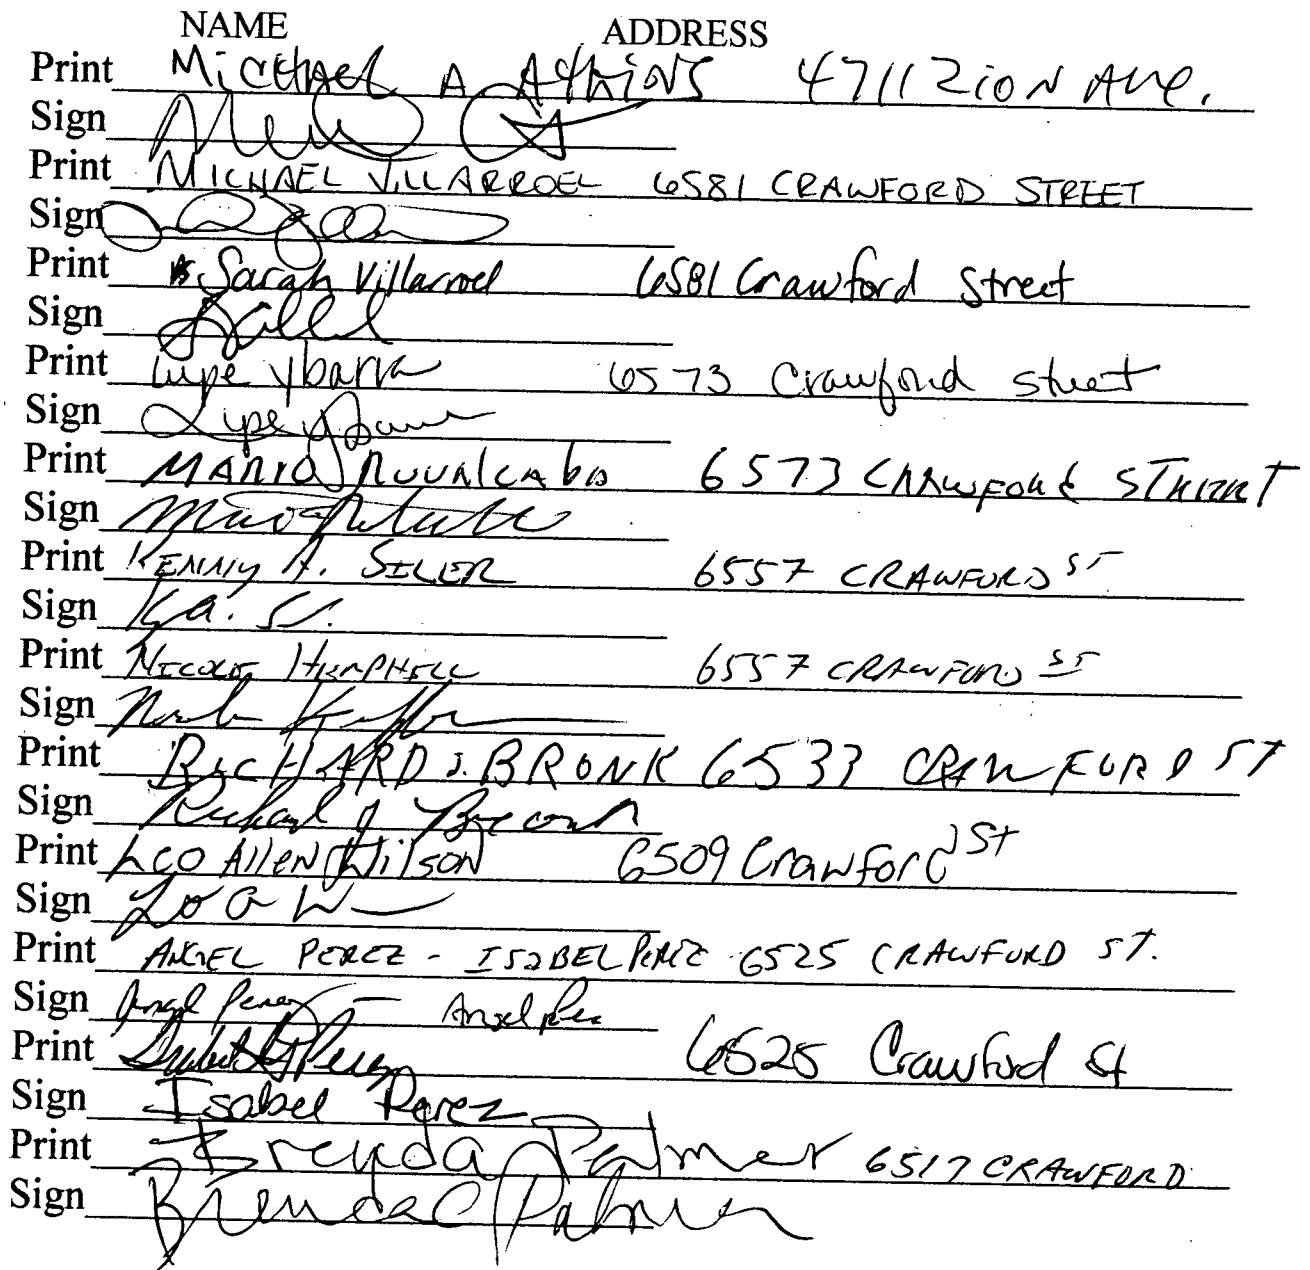 NAME ADDRESS
Print Michael A Atkins 4711 Zion Ave.
Sign
Print MICHAEL VILLARROEL 6581 CRAWFORD STREET
Sign
Print Sarah Villarroel 6581 Crawford Street
Sign
Print Lupe Ybarra 6573 Crawford street
Sign Lupe Ybarra
Print MARIO RUVALCABA 6573 CRAWFORd STREET
Sign
Print KENNY A. SILER 6557 CRAWFORD ST
Sign
Print NICOLE HEMPHILL 6557 CRAWFORD ST
Sign
Print RICHARD J. BRONK 6533 CRAWFORD ST
Sign Richard J Bronk
Print Leo Allen Wilson 6509 Crawford St
Sign
Print ANGEL PEREZ - ISABEL PEREZ 6525 CRAWFORD ST.
Sign Angel Perez - Angel Perez
Print Isabel Perez 6525 Crawford St
Sign Isabel Perez
Print Brenda Palmer 6517 CRAWFORD
Sign Brenda C Palmer